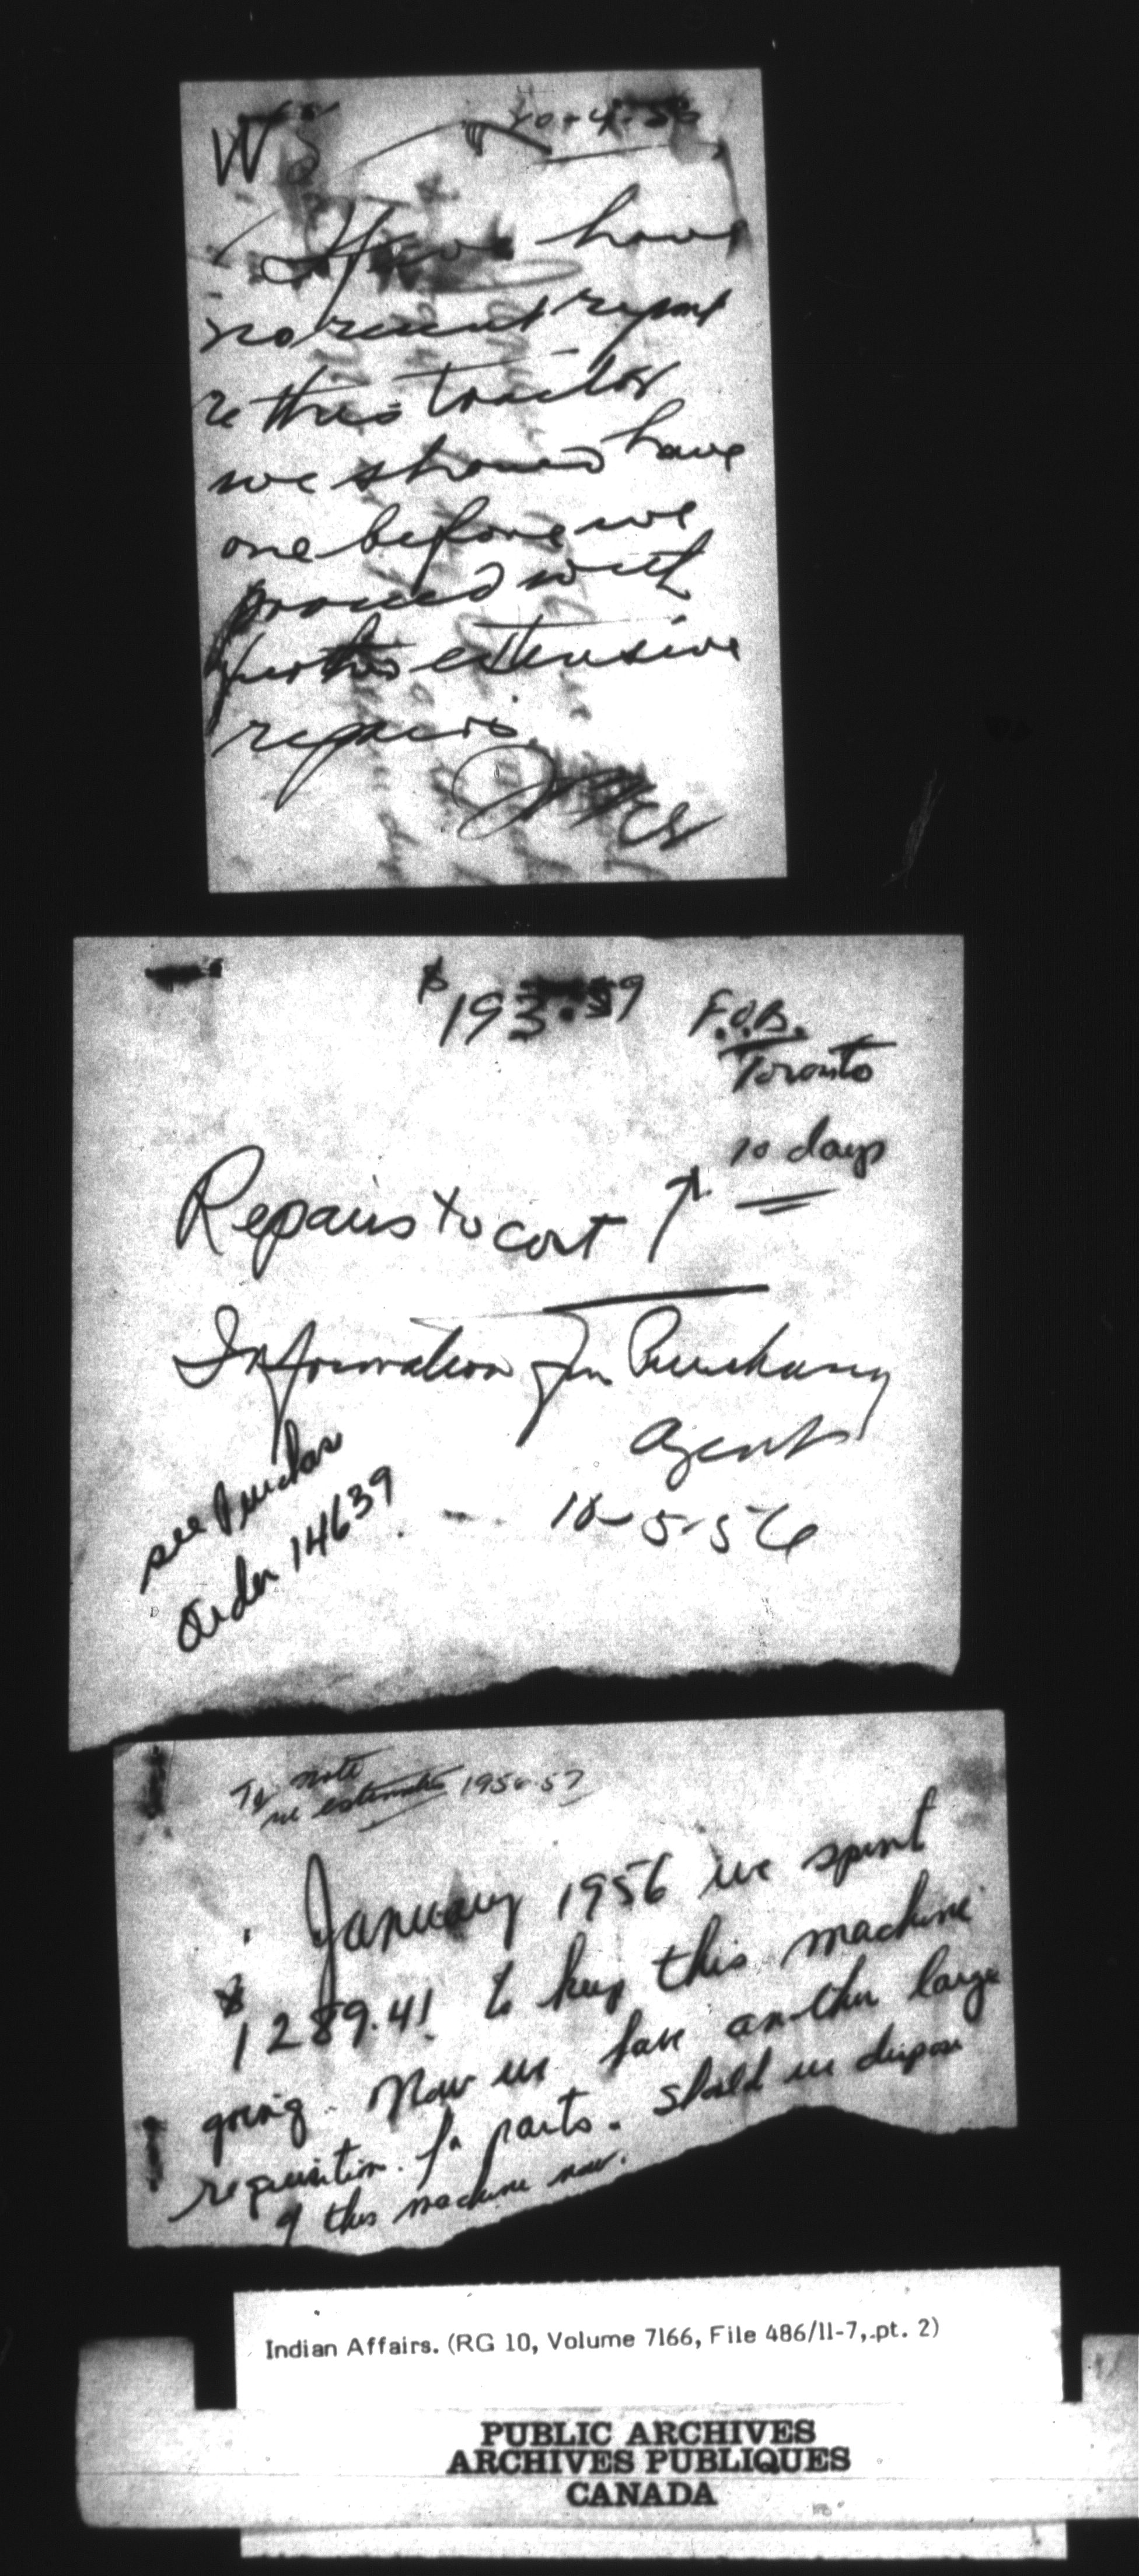 WS
20-4-56
If we have
no recent report
re this tractor
we should have
one before we
proceed with
further extensive
repairs.
$193.59
F.O.B.
Toronto
10 days
Repairs to cost ↑
Information fm Purchasing
Agent
10-5-56
see Purchas
Order 14639
To note
re estimates 1956-57
January 1956 we spent
$1289.41 to keep this machine
going. Now we have another large
requisition for parts. Should we dispose
of this machine now.
Indian Affairs. (RG 10, Volume 7166, File 486/11-7, pt. 2)
PUBLIC ARCHIVES
ARCHIVES PUBLIQUES
CANADA